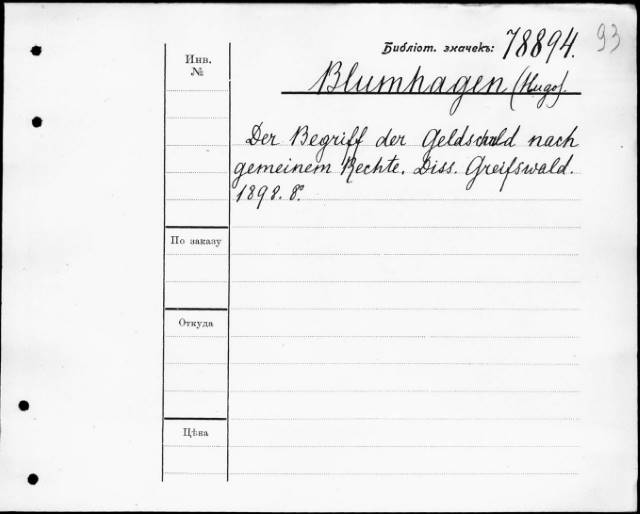 Библіот. значекъ: 78894. 93
Инв. №
Blumhagen (Hugo).
Der Begriff der Geldschuld nach
gemeinem Rechte. Diss. Greifswald.
1898. 8°
По заказу
Откуда
Цѣна